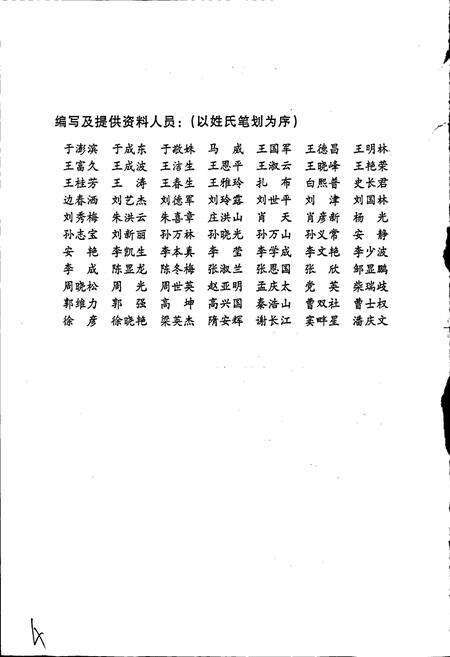 编写及提供资料人员:(以姓氏笔划为序)
于澎滨 于成东 于敬姝 马 威 王国军 王德昌 王明林
王富久 王成波 王洁生 王恩平 王淑云 王晓峰 王艳荣
王桂芳 王 涛 王春生 王雅玲 扎 布 白熙普 史长君
边春洒 刘艺杰 刘德军 刘玲霞 刘世平 刘 津 刘国林
刘秀梅 朱洪云 朱喜章 庄洪山 肖 天 肖彦新 杨 光
孙志宝 刘新丽 孙万林 孙晓光 孙万山 孙义常 安 静
安 艳 李凯生 李本真 李 莹 李学成 李文艳 李少波
李 成 陈显龙 陈冬梅 张淑兰 张恩国 张 欣 邹显鹏
周晓松 周 光 周世英 赵亚明 孟庆太 党 英 柴瑞歧
郭维力 郭 强 高 坤 高兴国 秦浩山 曹双社 曹士权
徐 彦 徐晓艳 梁英杰 隋安辉 谢长江 窦畔星 潘庆文